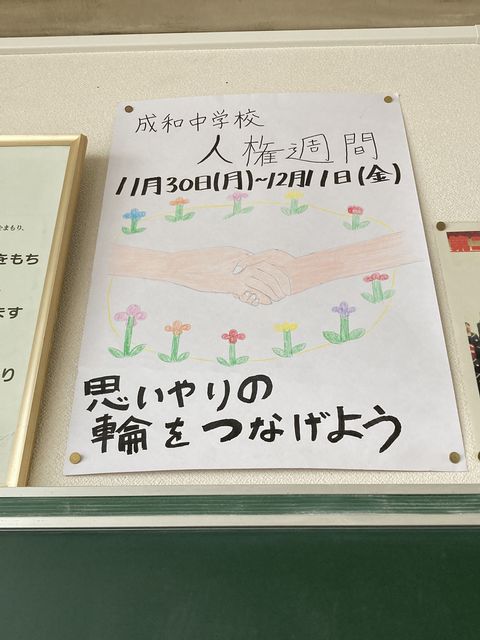 成和中学校
人権週間
11月30日(月)~12月11日(金)
思いやりの
輪をつなげよう
をもち
ます
り
第二